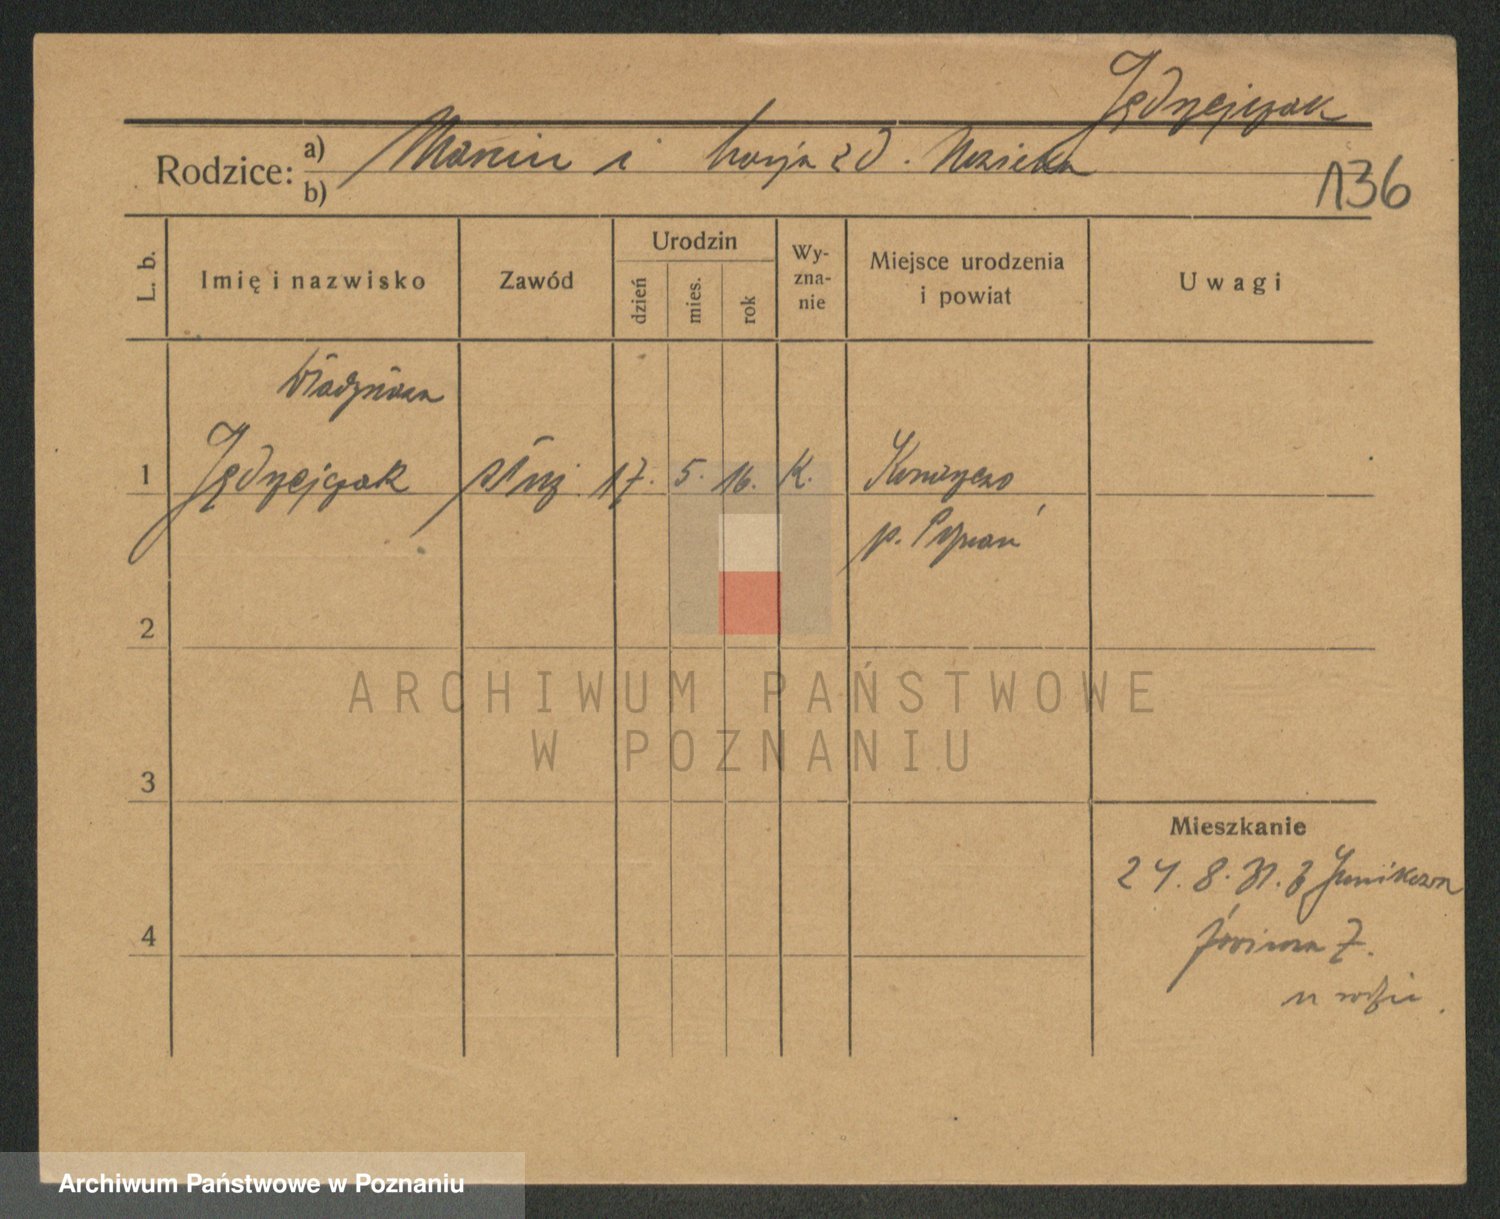 Jędrzejczak
Rodzice: a) Marcin i
b)
136
L. b.
Imię i nazwisko
Zawód
Urodzin
dzień
mies.
rok
Wy-
zna-
nie
Miejsce urodzenia
i powiat
Uwagi
1
Jędrzejczak
17. 5. 16. K.
p. Poznań
2
3
4
Mieszkanie
24. 8. 31. z Junikowa
7.
ARCHIWUM PAŃSTWOWE
W POZNANIU
Archiwum Państwowe w Poznaniu